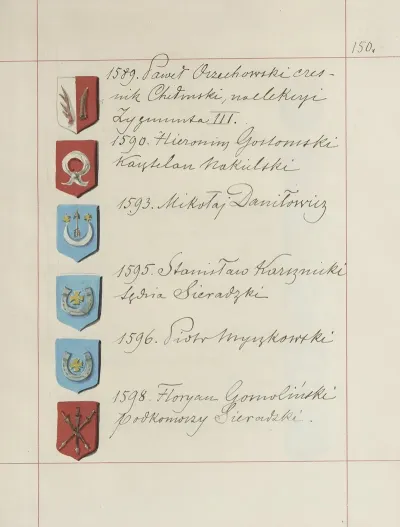 150.
1589. Paweł Orzechowski cześ-
nik Chełmski, na elekcyi
Zygmunta III.
1590. Hieronim Gostomski
Kasztelan Nakielski
1593. Mikołaj Daniłowicz
1595. Stanisław Karsznicki
Sędzia Sieradzki
1596. Piotr Myszkowski
1598. Floryan Gomoliński
podkomorzy Sieradzki.